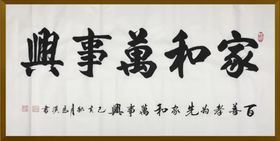 家和萬事興
百善孝为先家和萬事興己亥秋月書